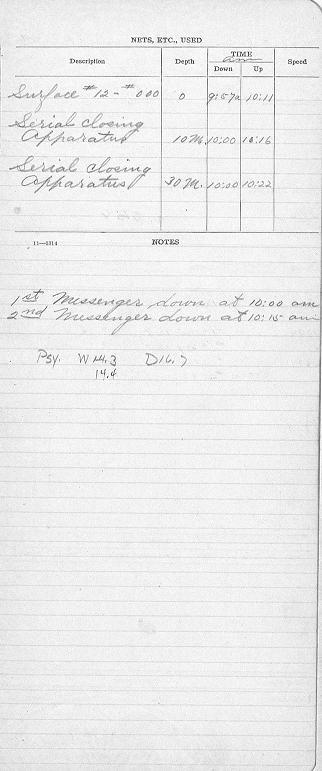 NETS, ETC., USED
Description Depth TIME Speed
am
Down Up
Surface #12-#000 0 9:57a 10:11
Serial Closing
Apparatus 10 M. 10:00 10:16
Serial Closing
Apparatus 30 M. 10:00 10:22
11—1314 NOTES
1st Messenger down at 10:00 am
2nd Messenger down at 10:15 am
Psy. W 14.3 D 16.7
14.4